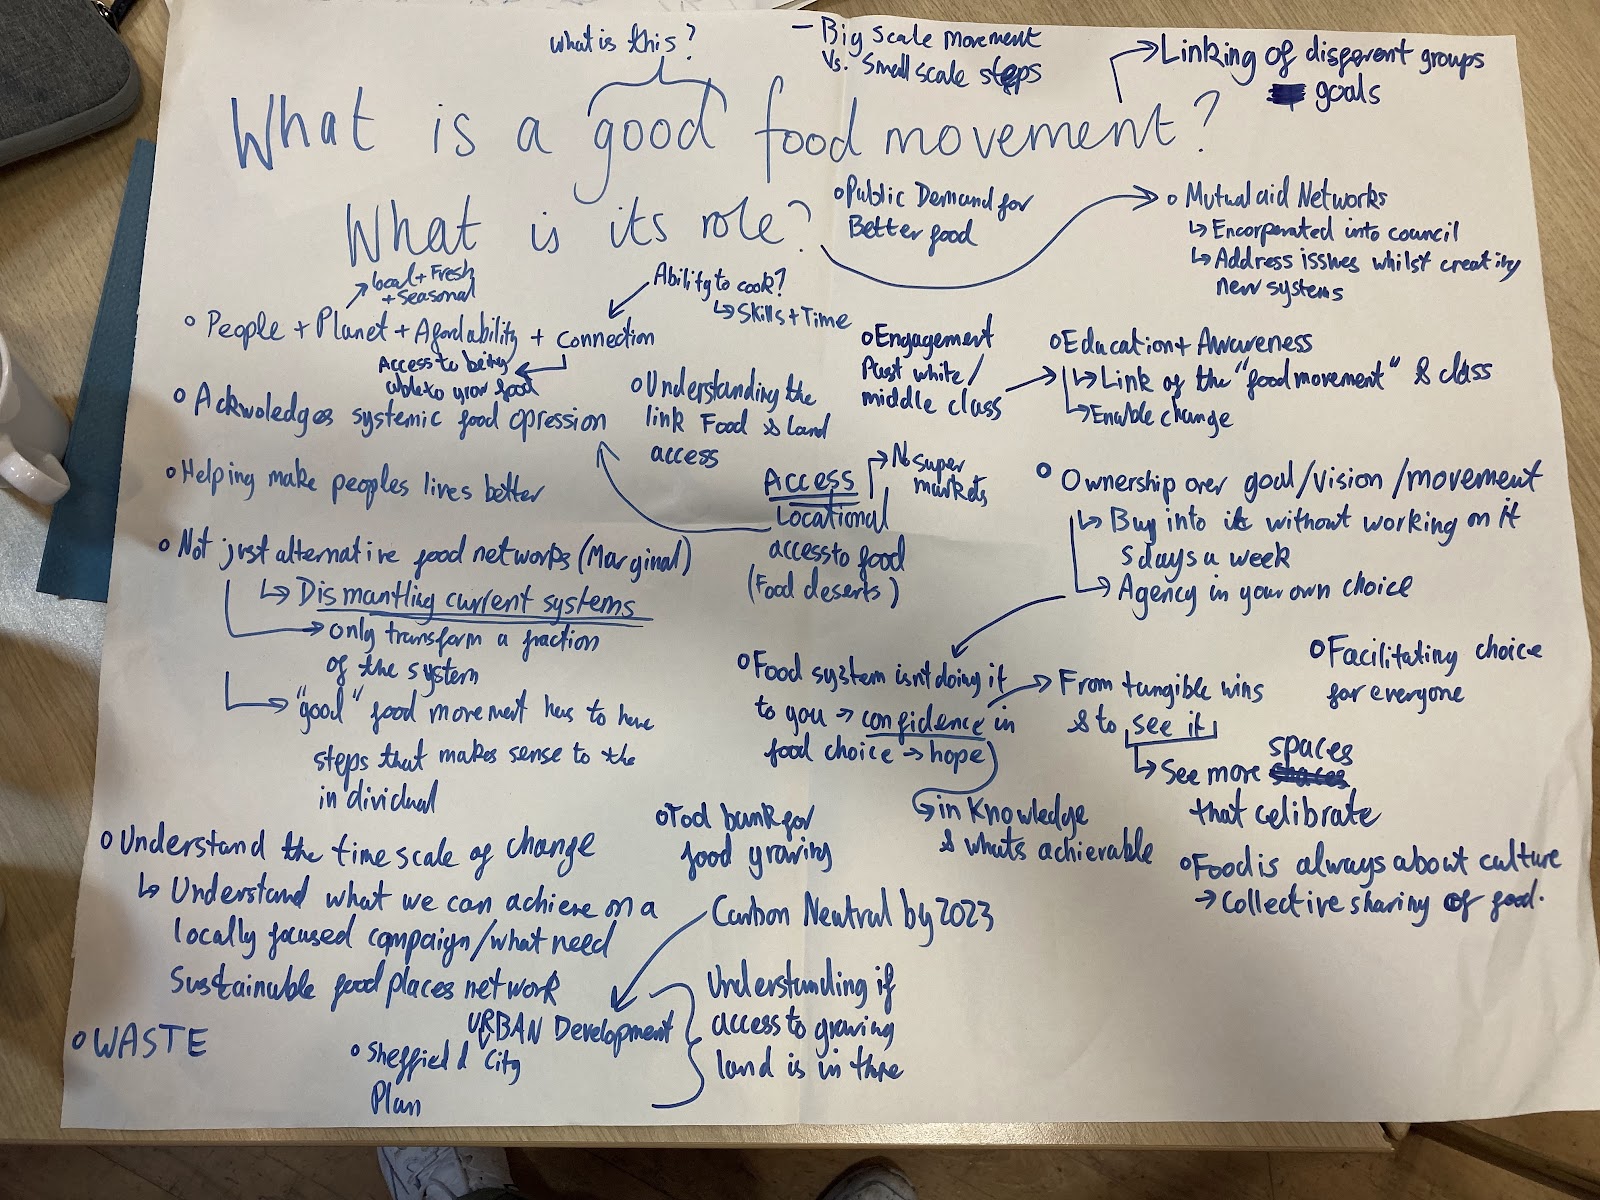 what is this?
- Big scale movement
Vs. Small scale steps
Linking of different groups
goals
What is a good food movement?
What is its role?
o Public Demand for
Better food
o Mutual aid Networks
↳ Encorporated into council
↳ Address issues whilst creating
new systems
local + Fresh
+ Seasonal
Ability to cook?
↳ Skills + Time
o People + Planet + Affordability + connection
Access to being
able to grow food
o Ackwoledges systemic food opression
o Understanding the
link Food & land
access
o Engagement
Past white/
middle class
o Education + Awareness
↳ Link of the "food movement" & class
↳ Enable change
o Helping make peoples lives better
Access
Locational
access to food
(Food deserts)
No super
markets
o Ownership over goal/vision/movement
↳ Buy into it without working on it
5 days a week
↳ Agency in your own choice
o Not just alternative food networks (Marginal)
↳ Dismantling current systems
→ only transform a fraction
of the system
→ "good" food movement has to have
steps that makes sense to the
individual
o Food system isn't doing it
to you → confidence in
food choice → hope
→ From tangible wins
& to see it
↳ See more spaces
that celibrate
o Facilitating choice
for everyone
in Knowledge
& whats achievable
o Food bank for
food growing
o Understand the time scale of change
↳ Understand what we can achieve on a
locally focused campaign/what need
Sustainable food places network
o Food is always about culture
→ Collective sharing of food.
Carbon Neutral by 2023
o WASTE
URBAN Development
o Sheffield City
Plan
Understanding if
access to growing
land is in there